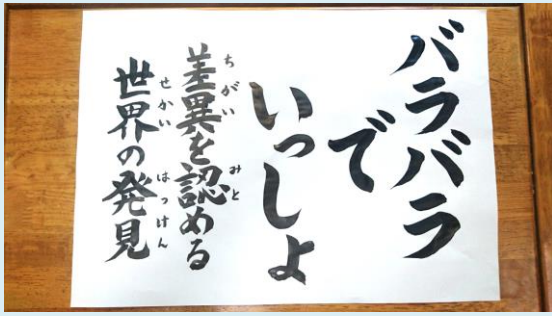 バラバラ
で
いっしょ
差異を認める
ちがい みと
世界の発見
せかい はっけん